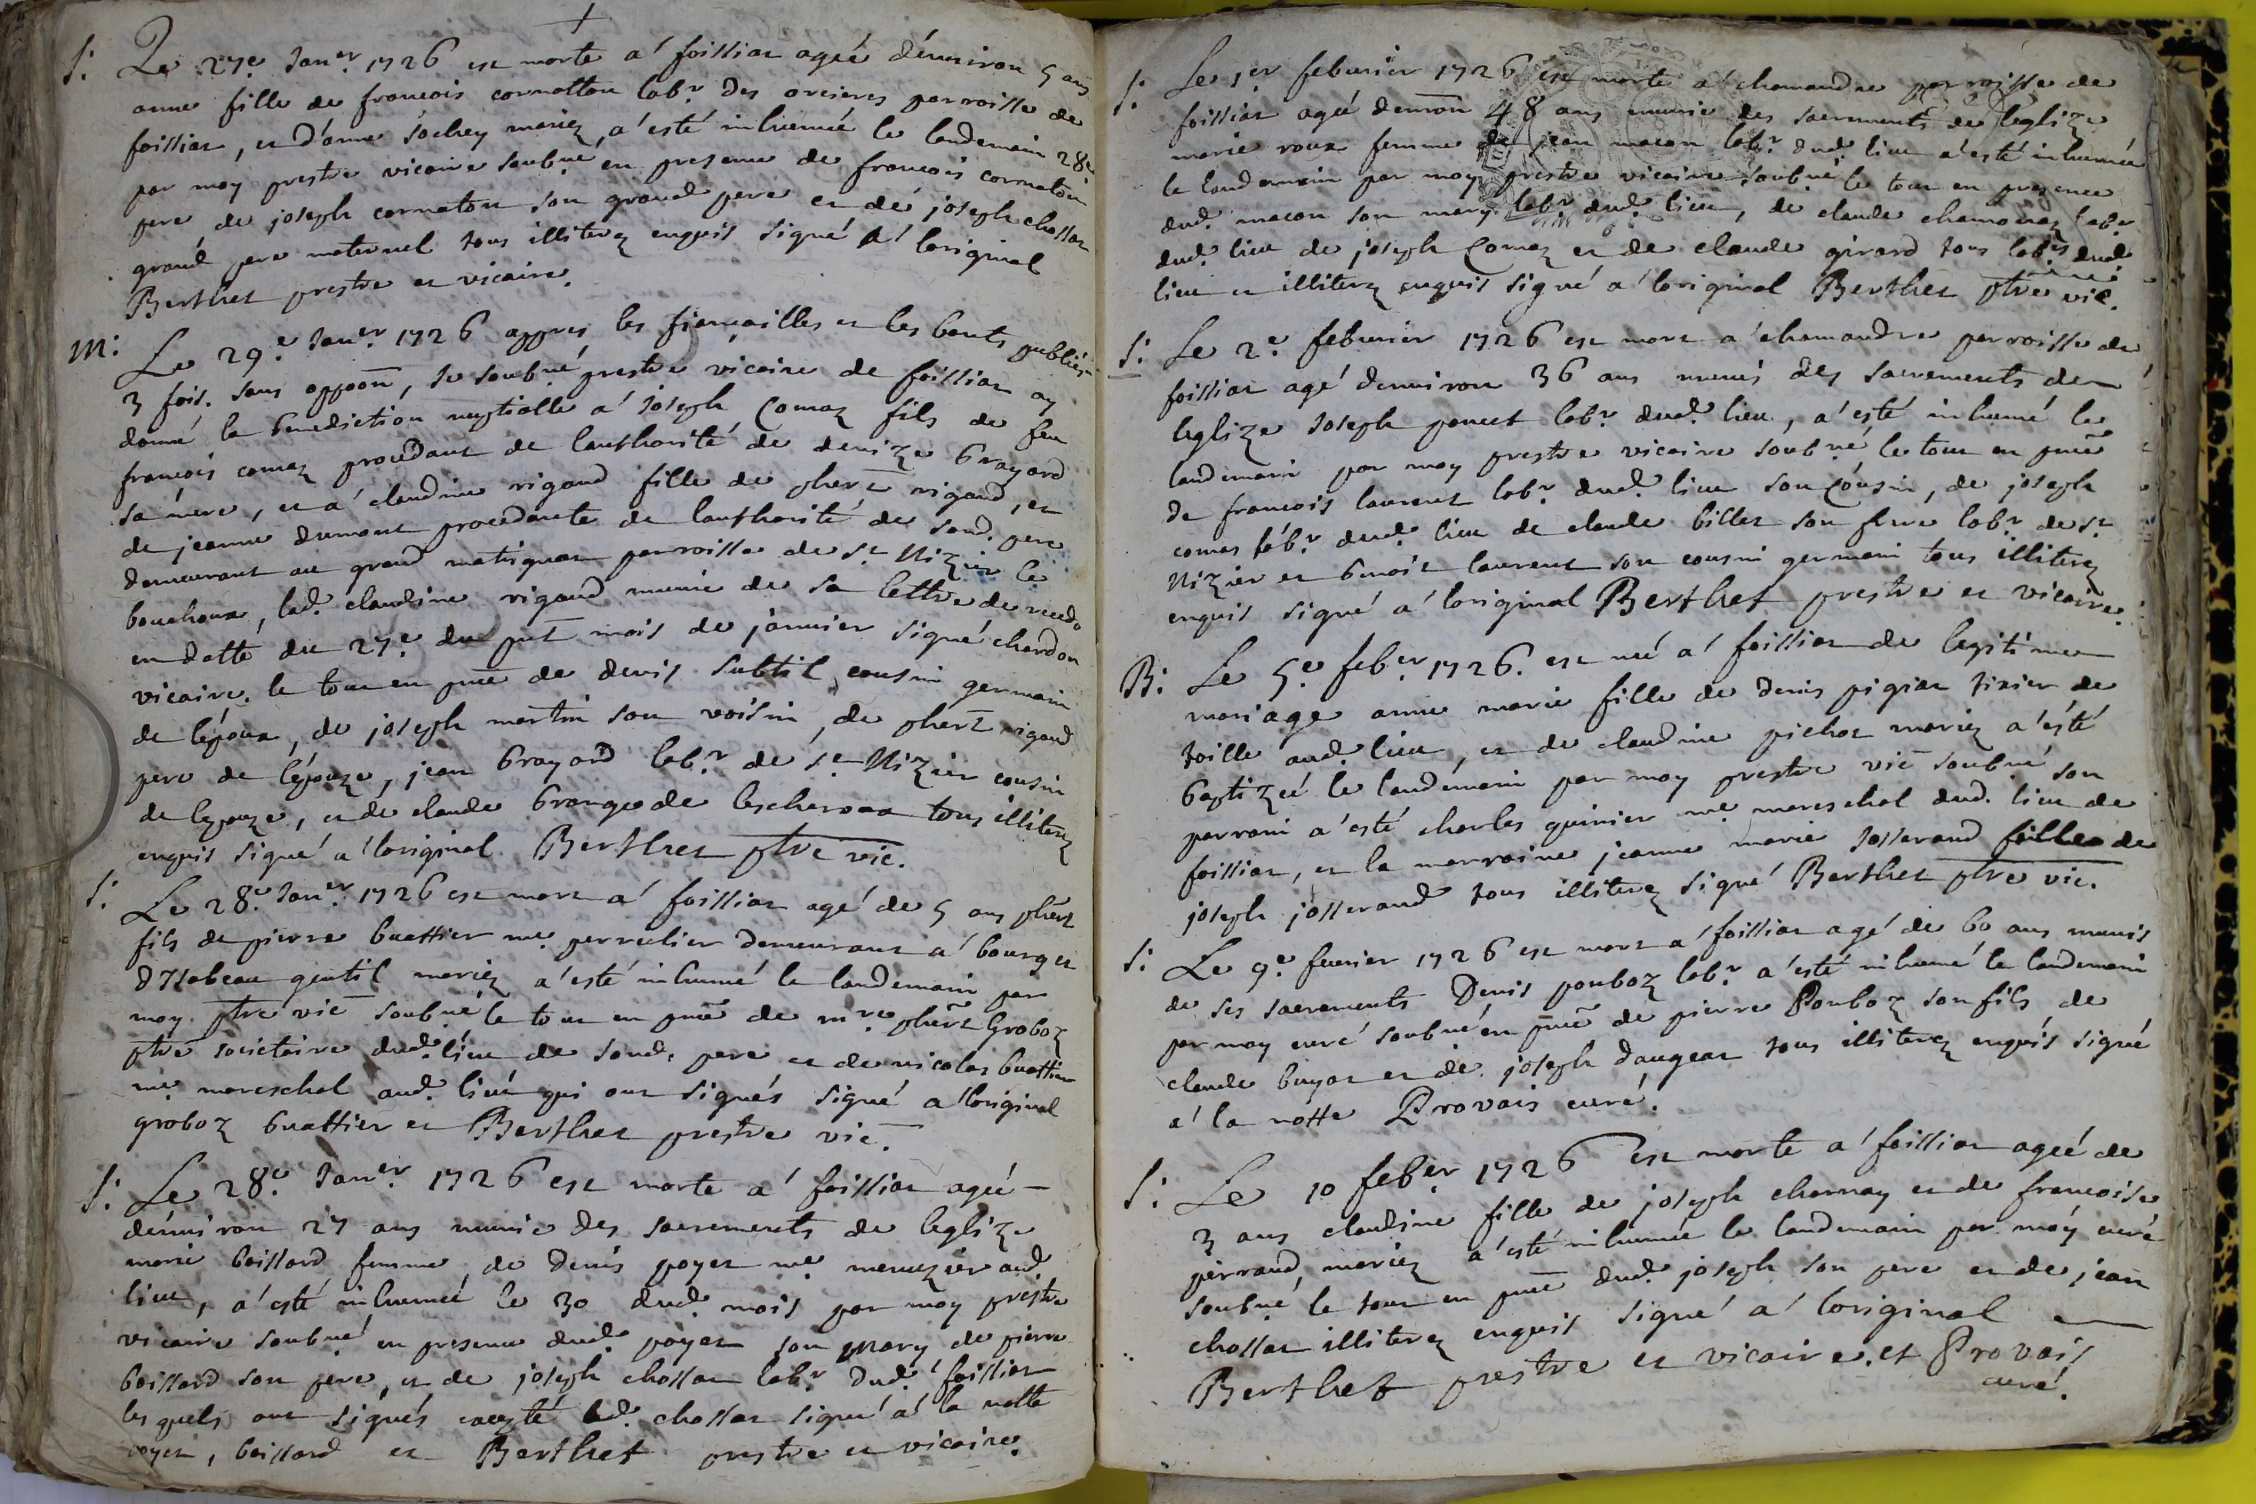 S: Le 27e Janer 1726 est morte a foissiat ageé dénuiron 5 ans
anne fille de francois cornatton labr des orcieres parroisse de
foissiat, et d'anne sochey mariez, a esté inhumeé le landemain 28e
par moy prestre vicaire soubné en presence de francois cornaton
pere, de joseph cornaton son grand pere et de joseph chossat
grand pere maternel tous illiterez enquis signé a loriginal
Berthet prestre et vicaire.
M: Le 29e Janer 1726 appres les fiancailles et les bants publiés
3 fois. sans oppoōn, Je soubné prestre vicaire de foissiat ay
donné la benediction nuptialle a Joseph Comaz fils de feu
francois comaz procedant de lauthorité de denize brayard
sa mere, et a claudine rigaud fille de phert rigaud, et
de jeanne dumont procedante de lauthorité de sond. pere
demeurant au grand matignat parroisse de st Nizier le
bouchoux, lad. claudine rigaud munie de sa lettre de recedo
en datte du 27e du pnt mois de janvier signé chardon
vicaire. le tout en pnce de denis subtil cousin germain
de lépoux, de joseph martin son voisin, de phert rigaud
pere de lépouze, jean brayard labr de st Nizier cousin
de lepouze, et de claude brangede lescheroux tous illiterez
enquis signé a loriginal Berthet ptre vic.
S: Le 28e Janer 1726 est mort a foissiat agé de 5 ans phert
fils de pierre buattier me perrulier demeurant a bourg et
d'Isabeau gentil mariez a esté inhumé le landemain par
moy ptre vic soubné le tout en pnce de mre phert Groboz
ptre societaire dud. lieu de sond. pere et de nicolas buattier
me mareschal aud. lieu qui ont signés signé a loriginal
groboz buattier et Berthet prestre vic.
S: Le 28e Janer 1726 est morte a foissiat ageé
dénuiron 27 ans munie des sacrements de leglize
marie boissard femme de denis poyet me menuzier aud.
lieu, a esté inhumeé le 30 dud. mois par moy prestre
vicaire soubné en presence dud. poyet son mary de pierre
boissard son pere, et de joseph chossat labr dud. foissiat
les quels ont signés excepté led. chossat signé a la notte
poyet, boissard et Berthet prestre et vicaire.
S: Le 1er feburier 1726 est morte a chamandre parroisse de
foissiat ageé denuirōn 48 ans munie des sacrements de leglize
marie roux femme de jean macon labr dud. lieu a esté inhumeé
le landemain par moy prestre vicaire soubné le tout en presence
dud. macon son mary labr dud. lieu, de claude chamonaz labr
dud. lieu de joseph Comaz et de claude girard tous labrs dud.
lieu et illiterez enquis signé a loriginal Berthet ptre vic.
S: Le 2e feburier 1726 est mort a chamandre parroisse de
foissiat agé denuiron 36 ans munis des sacrements de
leglize Joseph poncet labr dud. lieu, a esté inhumé le
landemain par moy prestre vicaire soubné le tout en pnce
de francois laurent labr dud. lieu son Cousin, de joseph
comas labr dud. lieu de claude billet son frere labr de st
Nizier et benoit laurent son cousin germain tous illiterez
enquis signé a loriginal Berthet prestre et vicaire.
B: Le 5e feber 1726. est neé a foissiat de legitime
mariage anne marie fille de denis pigiat tixier de
toille aud. lieu, et de claudine pichot mariez a esté
baptizeé le landemain par moy prestre vic soubné son
parrain a esté charles guinier me mareschal dud. lieu de
foissiat, et la marraine jeanne marie Josserand fille de
joseph josserand tous illiterez signé Berthet ptre vic.
S: Le 9e feurier 1726 est mort a foissiat agé de 60 ans munis
de ses sacrements Denis pouboz labr a esté inhumé le landemain
par moy curé soubné en pnce de pierre Pouboz son fils de
claude buyat et de joseph daugeat tous illiterez enquis signé
a la notte Provais curé.
S: Le 10 feber 1726 est morte a foissiat ageé de
3 ans claudine fille de joseph charnay et de francoise
perraud, mariez a esté inhumeé le landemain par moy curé
soubné le tout en pnce dud. joseph son pere et de jean
chossat illiterez enquis signé a loriginal
Berthet prestre et vicaire. et Provais
curé.